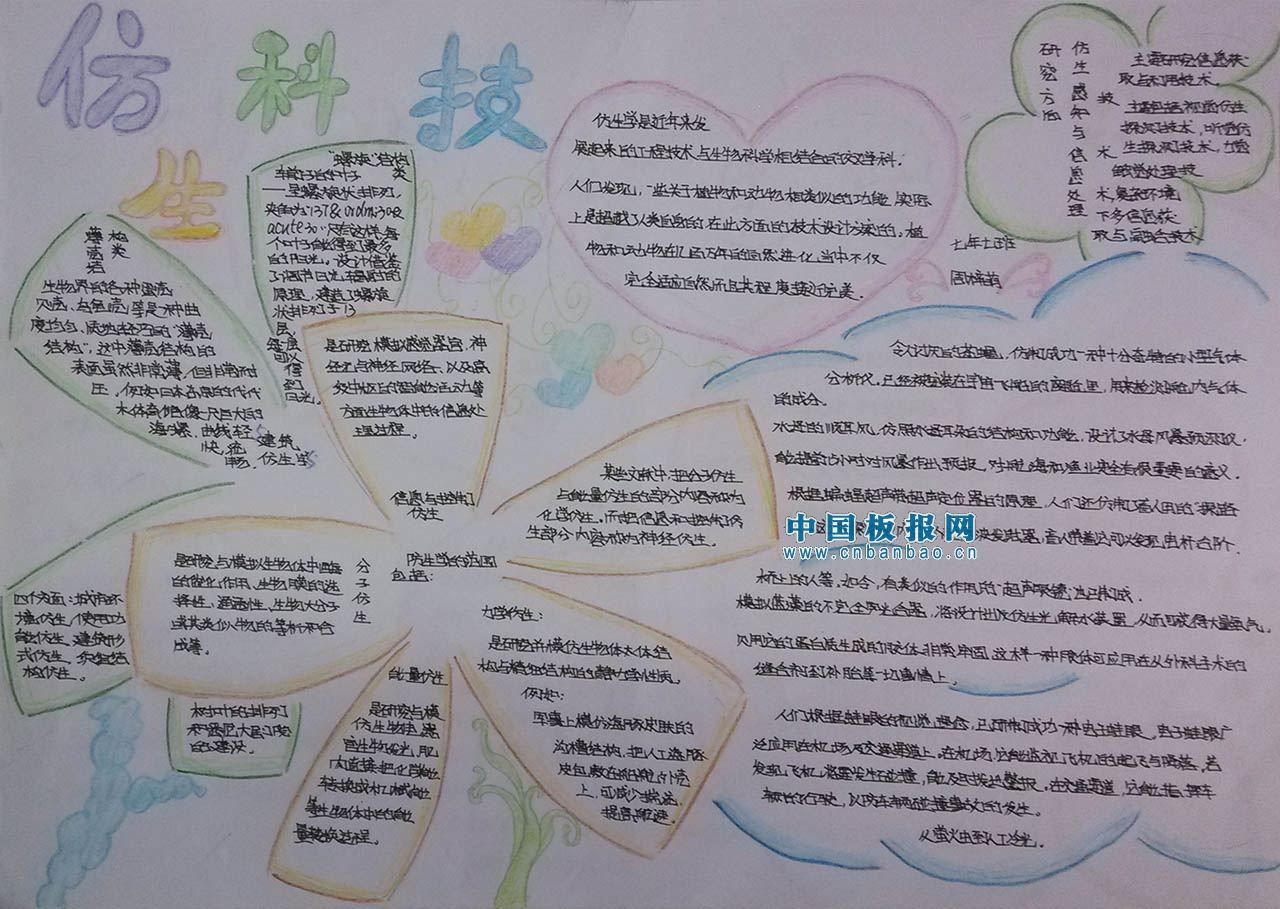 仿生科技
仿生学是近年来发
展起来的工程技术与生物科学相结合的交叉学科.
人们发现,一些关于植物和动物相类似的功能,实际
上是超越了人类自身的在此方面的技术设计方案的.植
物和动物在几百万年的自然进化当中不仅
完全适应自然而且其程度接近完美.
仿生感知与信息处理技术
研究方向
主要研究信息获
取与利用技术.
主要包括视觉仿生
探测技术,听觉仿
生探测技术,力触
触觉处理技
术,复杂环境
下多信息获
取与融合技术
七年七班
薄壳类
构造
生物界的各种蛋壳
贝壳,乌龟壳,等是一种曲
度均匀,质地轻巧的"薄壳
结构",这中薄壳结构的
表面虽然非常薄,但非常耐
压,
海螺,曲线轻
快,流畅,
建筑,
仿生学
"螺旋"结构类
车前子的叶子
呈螺旋状排列,
夹角为137&
acute30
这样每
个叶子都能得到最多
的阳光.设计借鉴
了调节日光辐射的
原理,建造了螺旋
状排列于13
层,
每层
可以
信部
阳光.
是研究模拟感觉器官,神
经元与神经网络,以及高
级中枢的智能活动等
方面生物体中的信息处
理过程.
信息与控制
仿生
某些文献中,把分子仿生
与能量仿生的部分内容称为
化学仿生,而把信息和控制仿
生部分内容称为神经仿生.
仿生学的范围
包括:
分子仿生
是研究与模拟生物体中酶
的催化作用,生物膜的选
择性、通透性、生物大分子
或其类似物的分析和合
成等。
四个方面:城市环
境仿生,使用功
能仿生,建筑形
式仿生,组织结
构仿生。
树叶的排列
和紧密大厦阳
的建设.
能量仿生
是研究与模
仿生物电器
官生物发光,肌
肉直接把化学能
转换成机械能
等生物体中的能
量转换过程.
力学仿生:
是研究并模仿生物体大体结
构与精细结构的静力学性质.
例如:
军事上模仿海豚皮肤的
沟槽结构,把人工海豚
皮包敷在船舰外壳
上,可减少揣流,
提高航速.
令人讨厌的苍蝇,仿制成功一种十分奇特的小型气体
分析仪.已经被安装在宇宙飞船的座舱里,用来检测舱内气体
的成分.
水母的顺风耳,仿照水母耳朵的结构和功能,设计了水母风暴预测仪,
能提前15小时对风暴作出预报,对航海和渔业安全有很重要的意义.
根据蝙蝠超声器超声定位器的原理,人们还仿制了盲人用的"探路
声波发射器,盲人带着它可以发现电杆,台阶.
桥上的人等,如今,有类似的作用的"超声眼镜"也已制成.
模拟蓝藻的不完全光合器,将设计出仿生光解水装置,从而可获得大量氢气.
贝用它的蛋白质生成的胶体非常牢固,这样一种胶体可应用在从外科手术的
缝合剂到补船等一切事情上.
人们根据蛙眼的视觉概念,已研制成功一种电子蛙眼.电子蛙眼广
泛应用在机场及交通渠道上,在机场,它能监视飞机的起飞与降落,若
发现飞机将要发生碰撞,能及时发出警报.在交通渠道,它能指挥车
辆的行驶,以防车辆碰撞事故的发生.
从萤火虫到人工冷光.
中国板报网
www.cnbanbao.cn